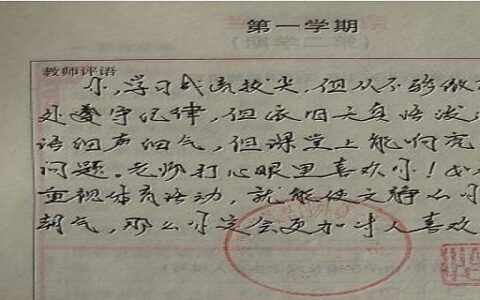 第一学期
教师评语
你,学习成绩拔尖,但从不骄傲
处遵守纪律,但依旧天真活泼
语细声细气,但课堂上能响亮
问题。老师打心眼里喜欢你!如
重视体育活动,就能使文静的你
朝气,那么你定会更加讨人喜欢